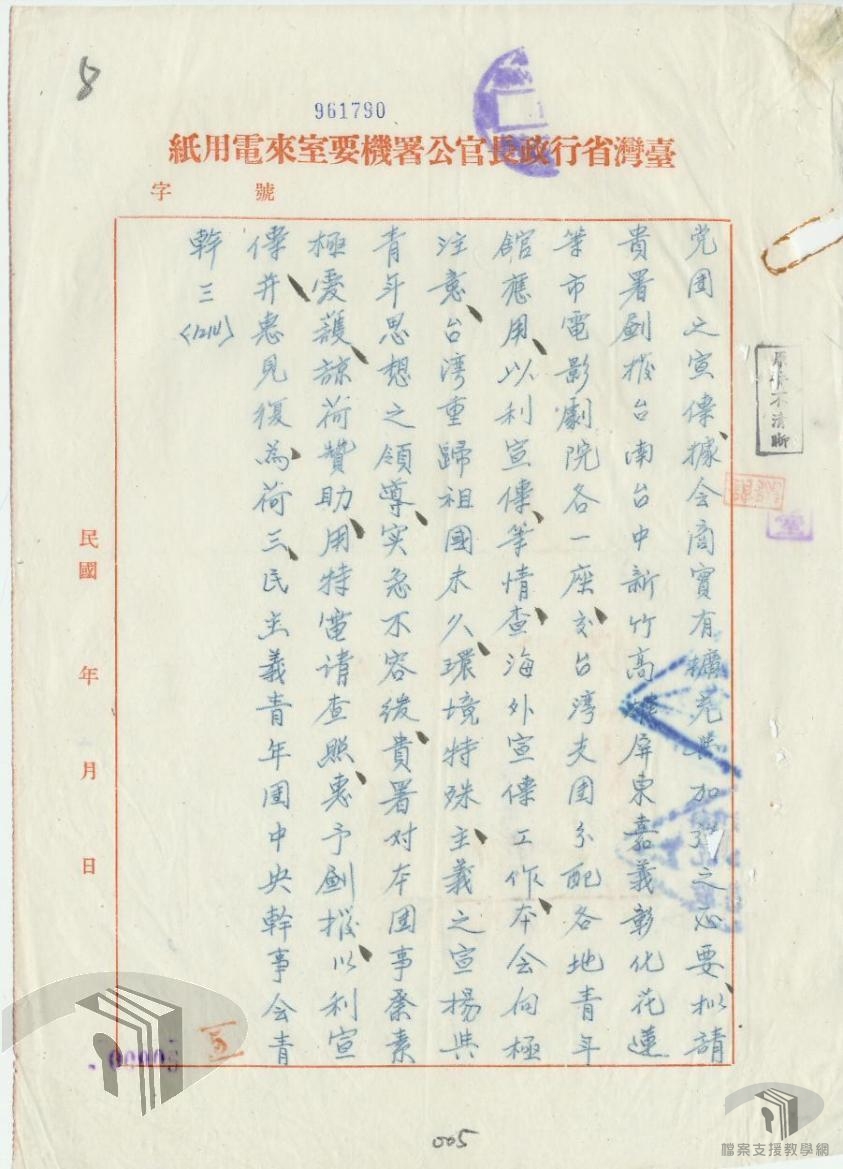 8
961790
紙用電來室要機署公官長政行省灣臺
字 號
党团之宣傳據会商實有擴充與加强之必要拟請
貴署劃撥台南台中新竹高雄屏東嘉義彰化花蓮
等市電影劇院各一座交台湾支团分配各地青年
館應用以利宣傳等情查海外宣傳工作本会向極
注意台湾重歸祖國未久環境特殊主義之宣揚與
青年思想之領導实急不容缓貴署对本团事業素
極愛護諒荷贊助用特電请查照惠予劃撥以利宣
傳并惠見復為荷三民主義青年團中央幹事会青
幹三
原來不清晰
民國 年 月 日
5
005
檔案支援教學網